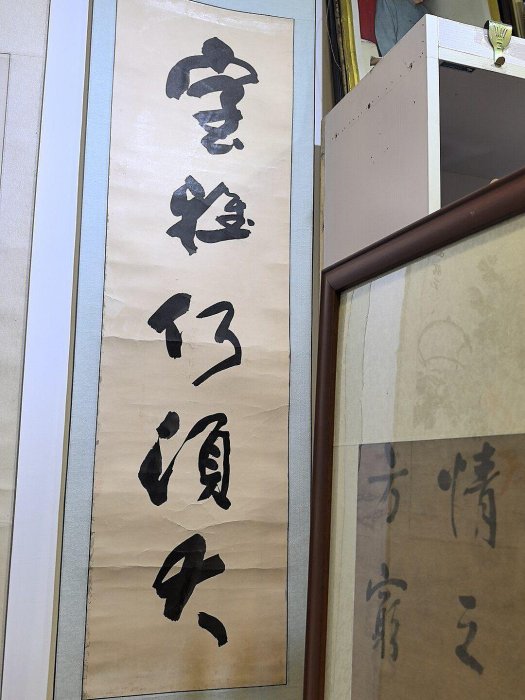 室雅何須大
情之
方窮